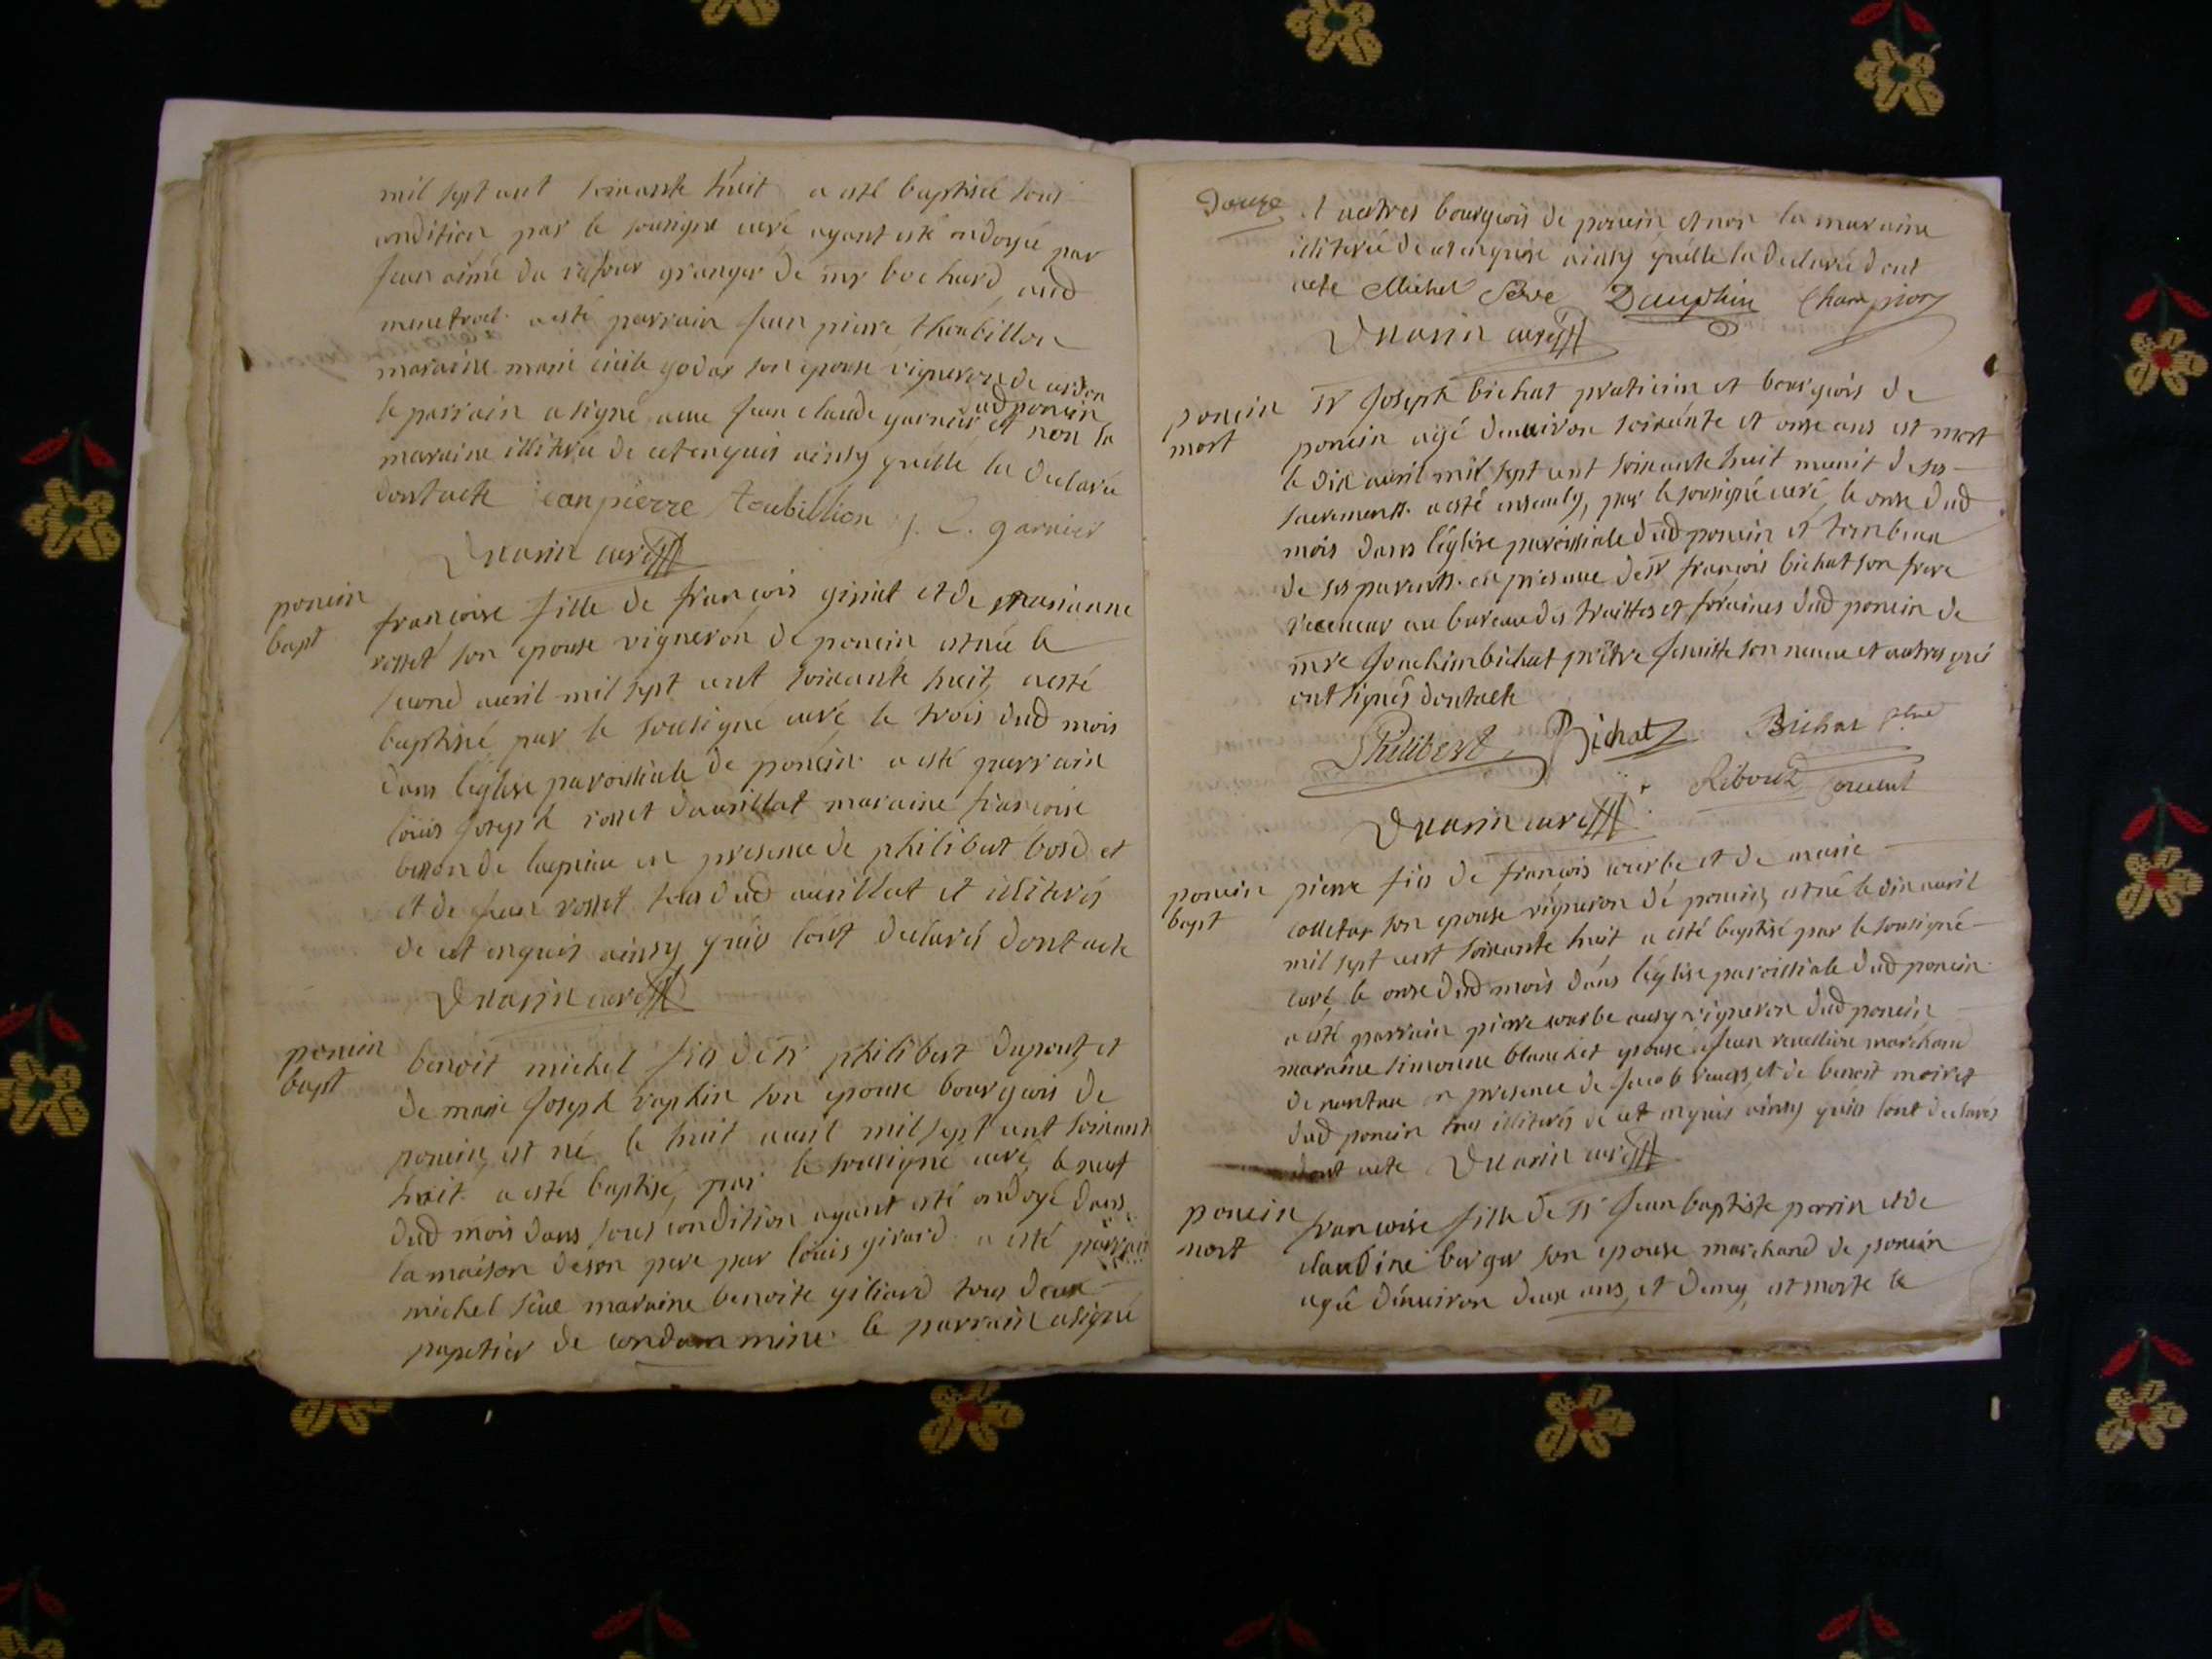 mil sept cent soixante huit a esté baptisée sous
condition par le sousigné curé ayant esté ondoyée par
jean aimé du granger de mr bochard aud
menetruel a esté parrain jean pierre thoubillon
maraine marie cécile godar son epouse vigneron de
dud poncin
le parrain a signé avec jean claude garnier et non la
maraine illiterée de cet enquis ainsy quelle la declaré
dont acte jean pierre toubillion J. C. garnier
Duarin curé
poncin
bapt
françoise fille de françois giriat et de marianne
rosset son epouse vigneron de poncin est née le
second avril mil sept cent soixante huit a esté
baptisée par le sousigné curé le trois dud mois
dans léglise paroissiale de poncin a esté parrain
louis joseph rosset davrillat maraine françoise
de en presence de philibert bosd et
et de jean rosset tous dud avrillat et illiterés
de cet enquis ainsy quils lont declarés dont acte
Duarin curé
poncin
bapt
benoit michel fils de sr philibert dupont et
de marie joseph raphin son epouse bourgeois de
poncin est né le huit avril mil sept cent soixante
huit a esté baptisé par le sousigné curé le neuf
dud mois dans sous condition ayant esté ondoyé dans
la maison de son pere par louis girard a esté parrain
michel séve maraine benoite giliard tous deux
papetier de condamine le parrain a signé
Douze
et autres bourgeois de poncin et non la maraine
illiterée de cet enquise ainsy quelle la declaré dont
acte Michel Seve Dauphin Champion
Duarin curé
poncin
mort
Sr joseph bichat praticien et bourgeois de
poncin agé denviron soixante et onse ans est mort
le dix avril mil sept cent soixante huit munit de ses
sacrements a esté ensevely, par le sousigné curé, le onse dud
mois dans léglise paroissiale dud poncin et tombeau
de ses parents en presence de sr françois bichat son frere
receveur au bureau des traittes et foraines dud poncin de
mre joachim bichat prêtre jesuitte son neveu et autres qui
ont signés dont acte
Philibert Bichat Bichat ptre
Riboud
Duarin curé
poncin
bapt
pierre fils de françois courbe et de marie
colletar son epouse vigneron de poncin est né le dix avril
mil sept cent soixante huit a esté baptisé par le sousigné
curé le onse dud mois dans léglise paroissiale dud poncin
a esté parrain pierre courbe aussy vigneron dud poncin
maraine simonne blanchet epouse a jean marchand
de nantua en presence de jacob et de benoit moiret
dud poncin tous illiterés de cet enquis ainsy quils lont declarés
dont acte Duarin curé
poncin
mort
françoise fille de sr jean baptiste perrin et de
claudine berger son epouse marchand de poncin
agée denviron deux ans et demy est morte le